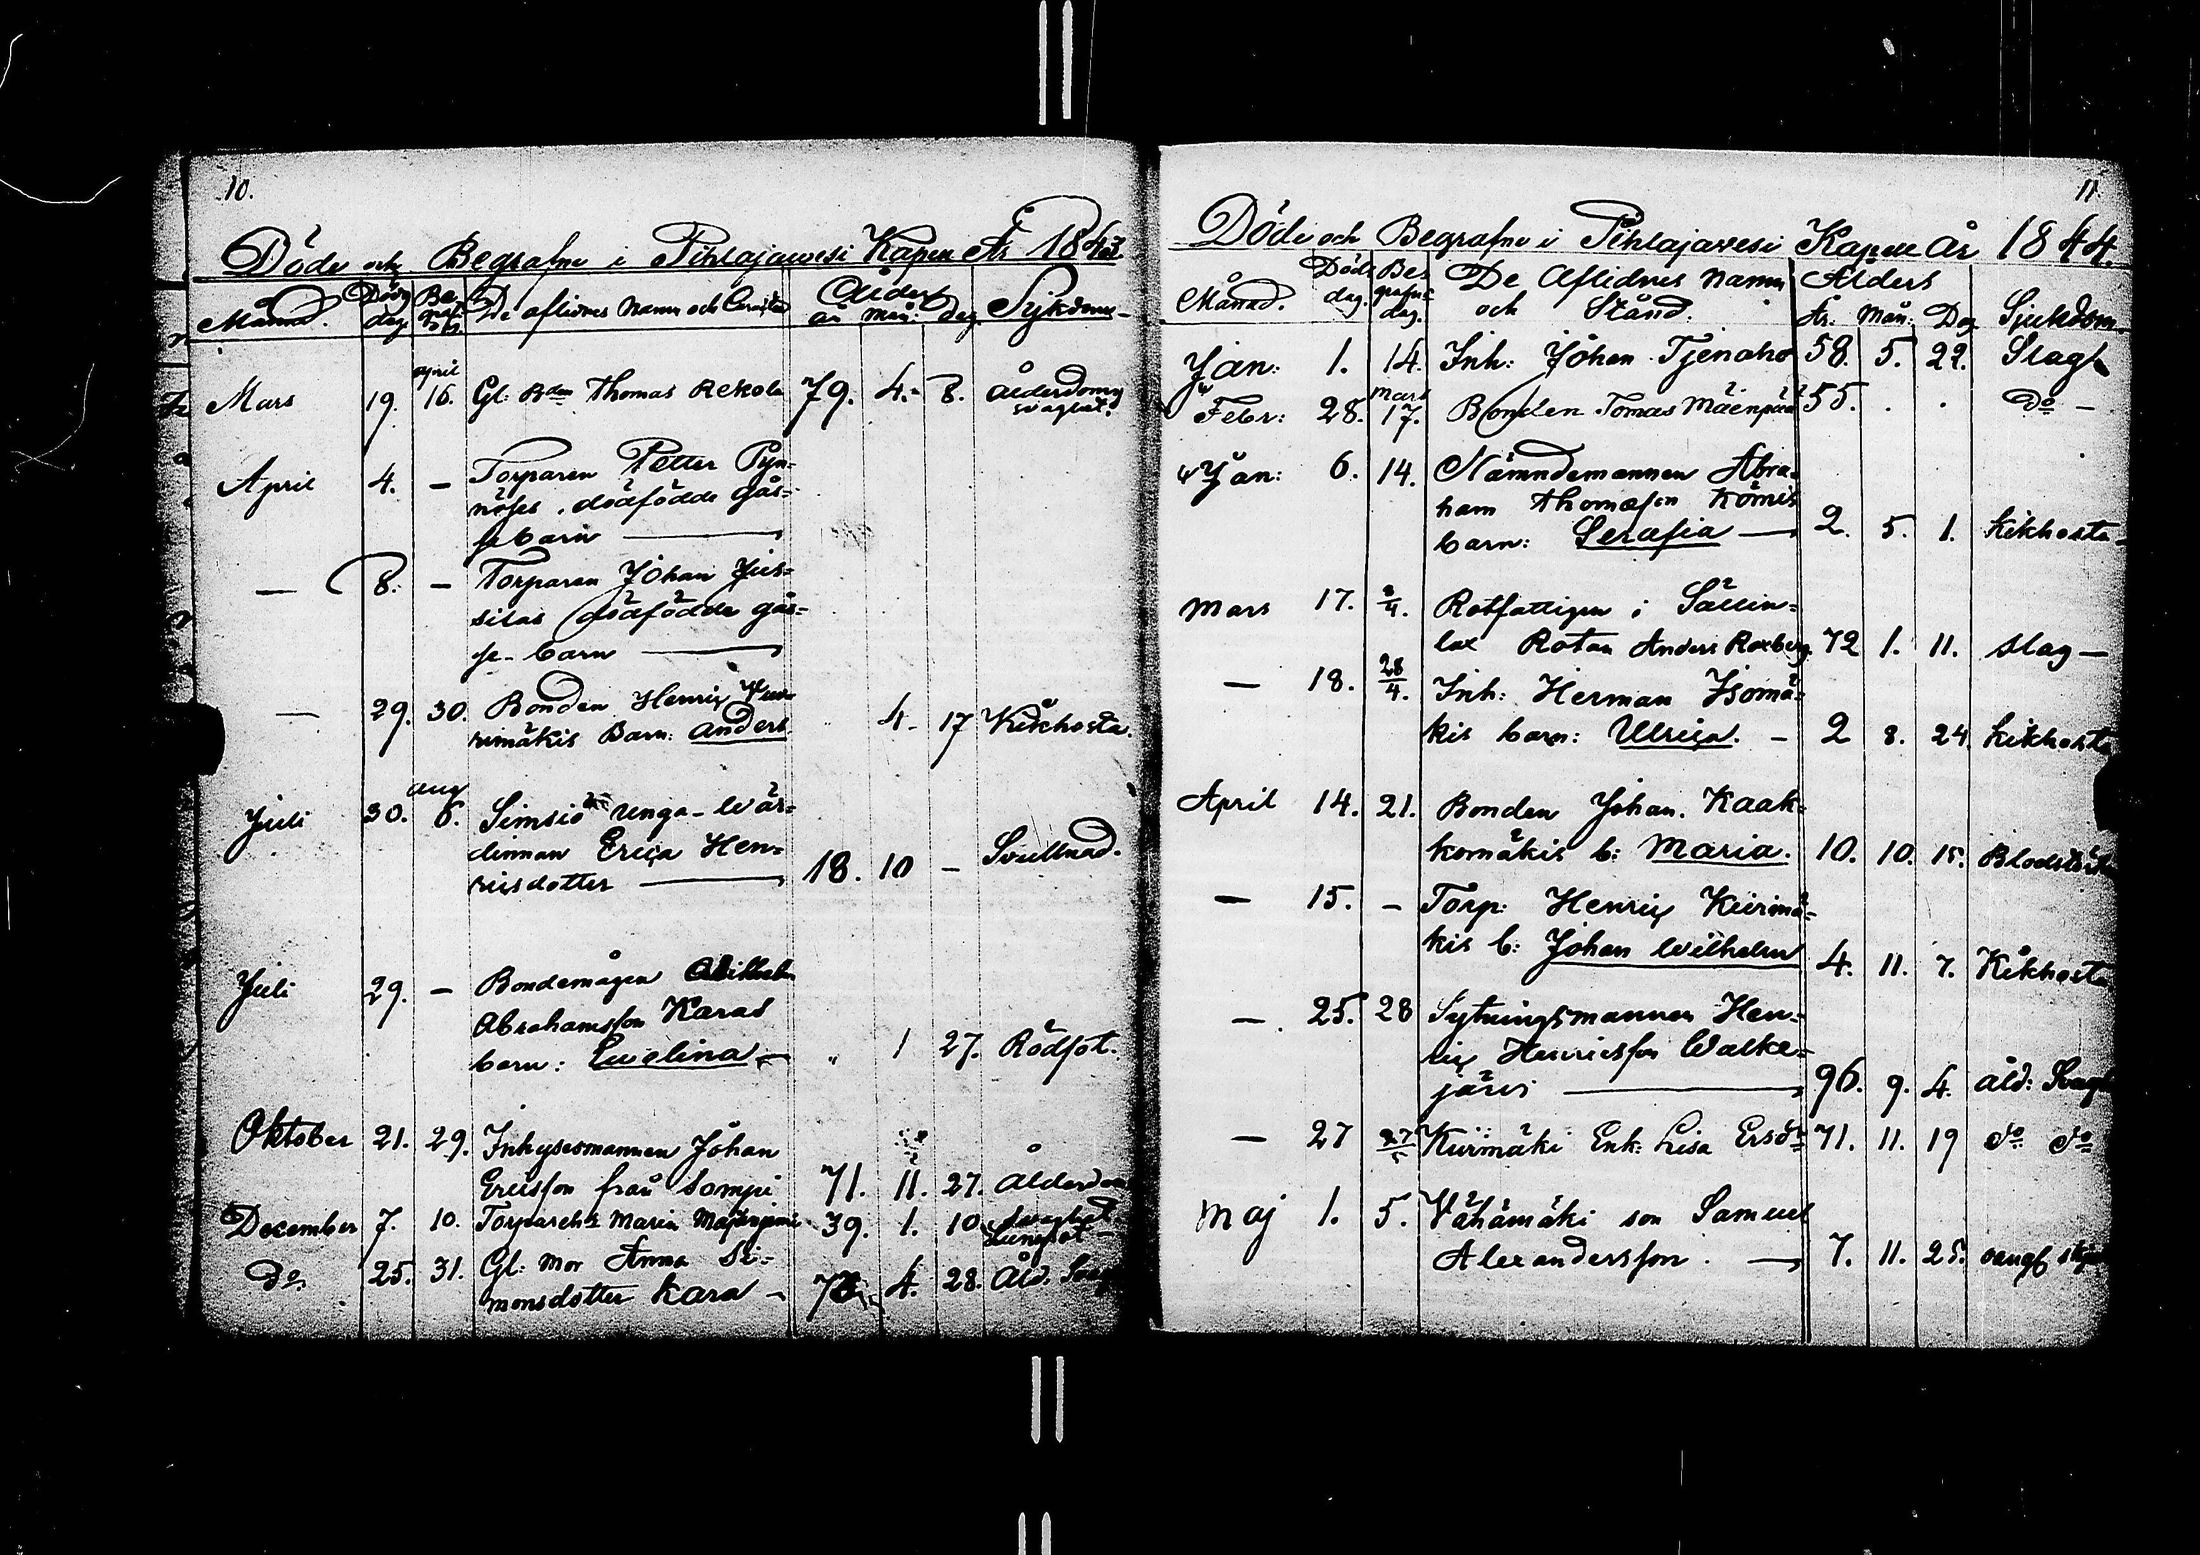 10.
Döde och Begrafne i Pihlajawesi Kapell År 1843.
Månad. Döds dag Begrafn. De aflidnes Namn och Ålder år mån: dag. Sjukdom
Mars 19. april 16. Gl: Bdn Thomas Rekola 79. 4. 8. Ålderdoms
svaghet.
April 4. — Torparen Petter Pyn-
nöses, dödfödde gås-
se barn —
— 8. — Torparen Johan Jus-
silas dödfödde gås-
se-barn —
— 29. 30. Bonden Henric
mäkis Barn: Anders 4. 17 Kikhosta.
Juli 30. aug 6. Simsiö Unga-Wär-
dinnan Erica Hen-
ricsdotter — 18. 10 — Svullnad.
Juli 29. — Bondemågen Wilhelm
Abrahamsson Karas
barn: Evelina — " 1 27. Rödsot.
Oktober 21. 29. Inhysesmannen Johan
Ericsson från Sompi 71. 11. 27. Ålderdoms
December 7. 10. Torpareh: Maria 39. 1. 10. svaghet
Lungsot —
Do. 25. 31. Gl: mor Anna Si-
monsdotter Kara — 4. 28. Åld.
11.
Döde och Begrafne i Pihlajawesi Kapell År 1844.
Månad. Döds dag. Begrafn: dag. De Aflidnes Namn och Stånd. Ålders År. Mån: Dag Sjukdom
Jan: 1. 14. Inh: Johan Tjenaho 58. 5. 22. Slag
Febr: 28. Mars 17. Bonden Tomas Mäenpää 55. . . Do —
Jan: 6. 14. Nämndemannen Abra-
ham Thomasson Kömis
barn: Serafia — 2. 5. 1. Kikhosta
Mars 17. 2/4. Rotfattigen i Sällin-
lax Rotan Anders Roxberg 72 1. 11. slag —
— 18. 28/4. Inh: Herman Isomä-
kis barn: Ulrica. — 2 8. 24. kikhosta
April 14. 21. Bonden Johan. Kaak-
komäkis b: Maria. 10. 10. 15. Blodstört
— 15. — Torp: Henric Kiirimä-
kis b: Johan Wilhelm 4. 11. 7. Kikhosta
— 25. 28 Sytningsmannen Hen-
ric Henricsson Walke-
järvi — 96. 9. 4. åld: Svagh
— 27 27/5 Kiirimäki Enk: Lisa Ersdr 71. 11. 19 do do
Maj 1. 5. Vähämäki son Samuel
Alexandersson. — 7. 11. 25.